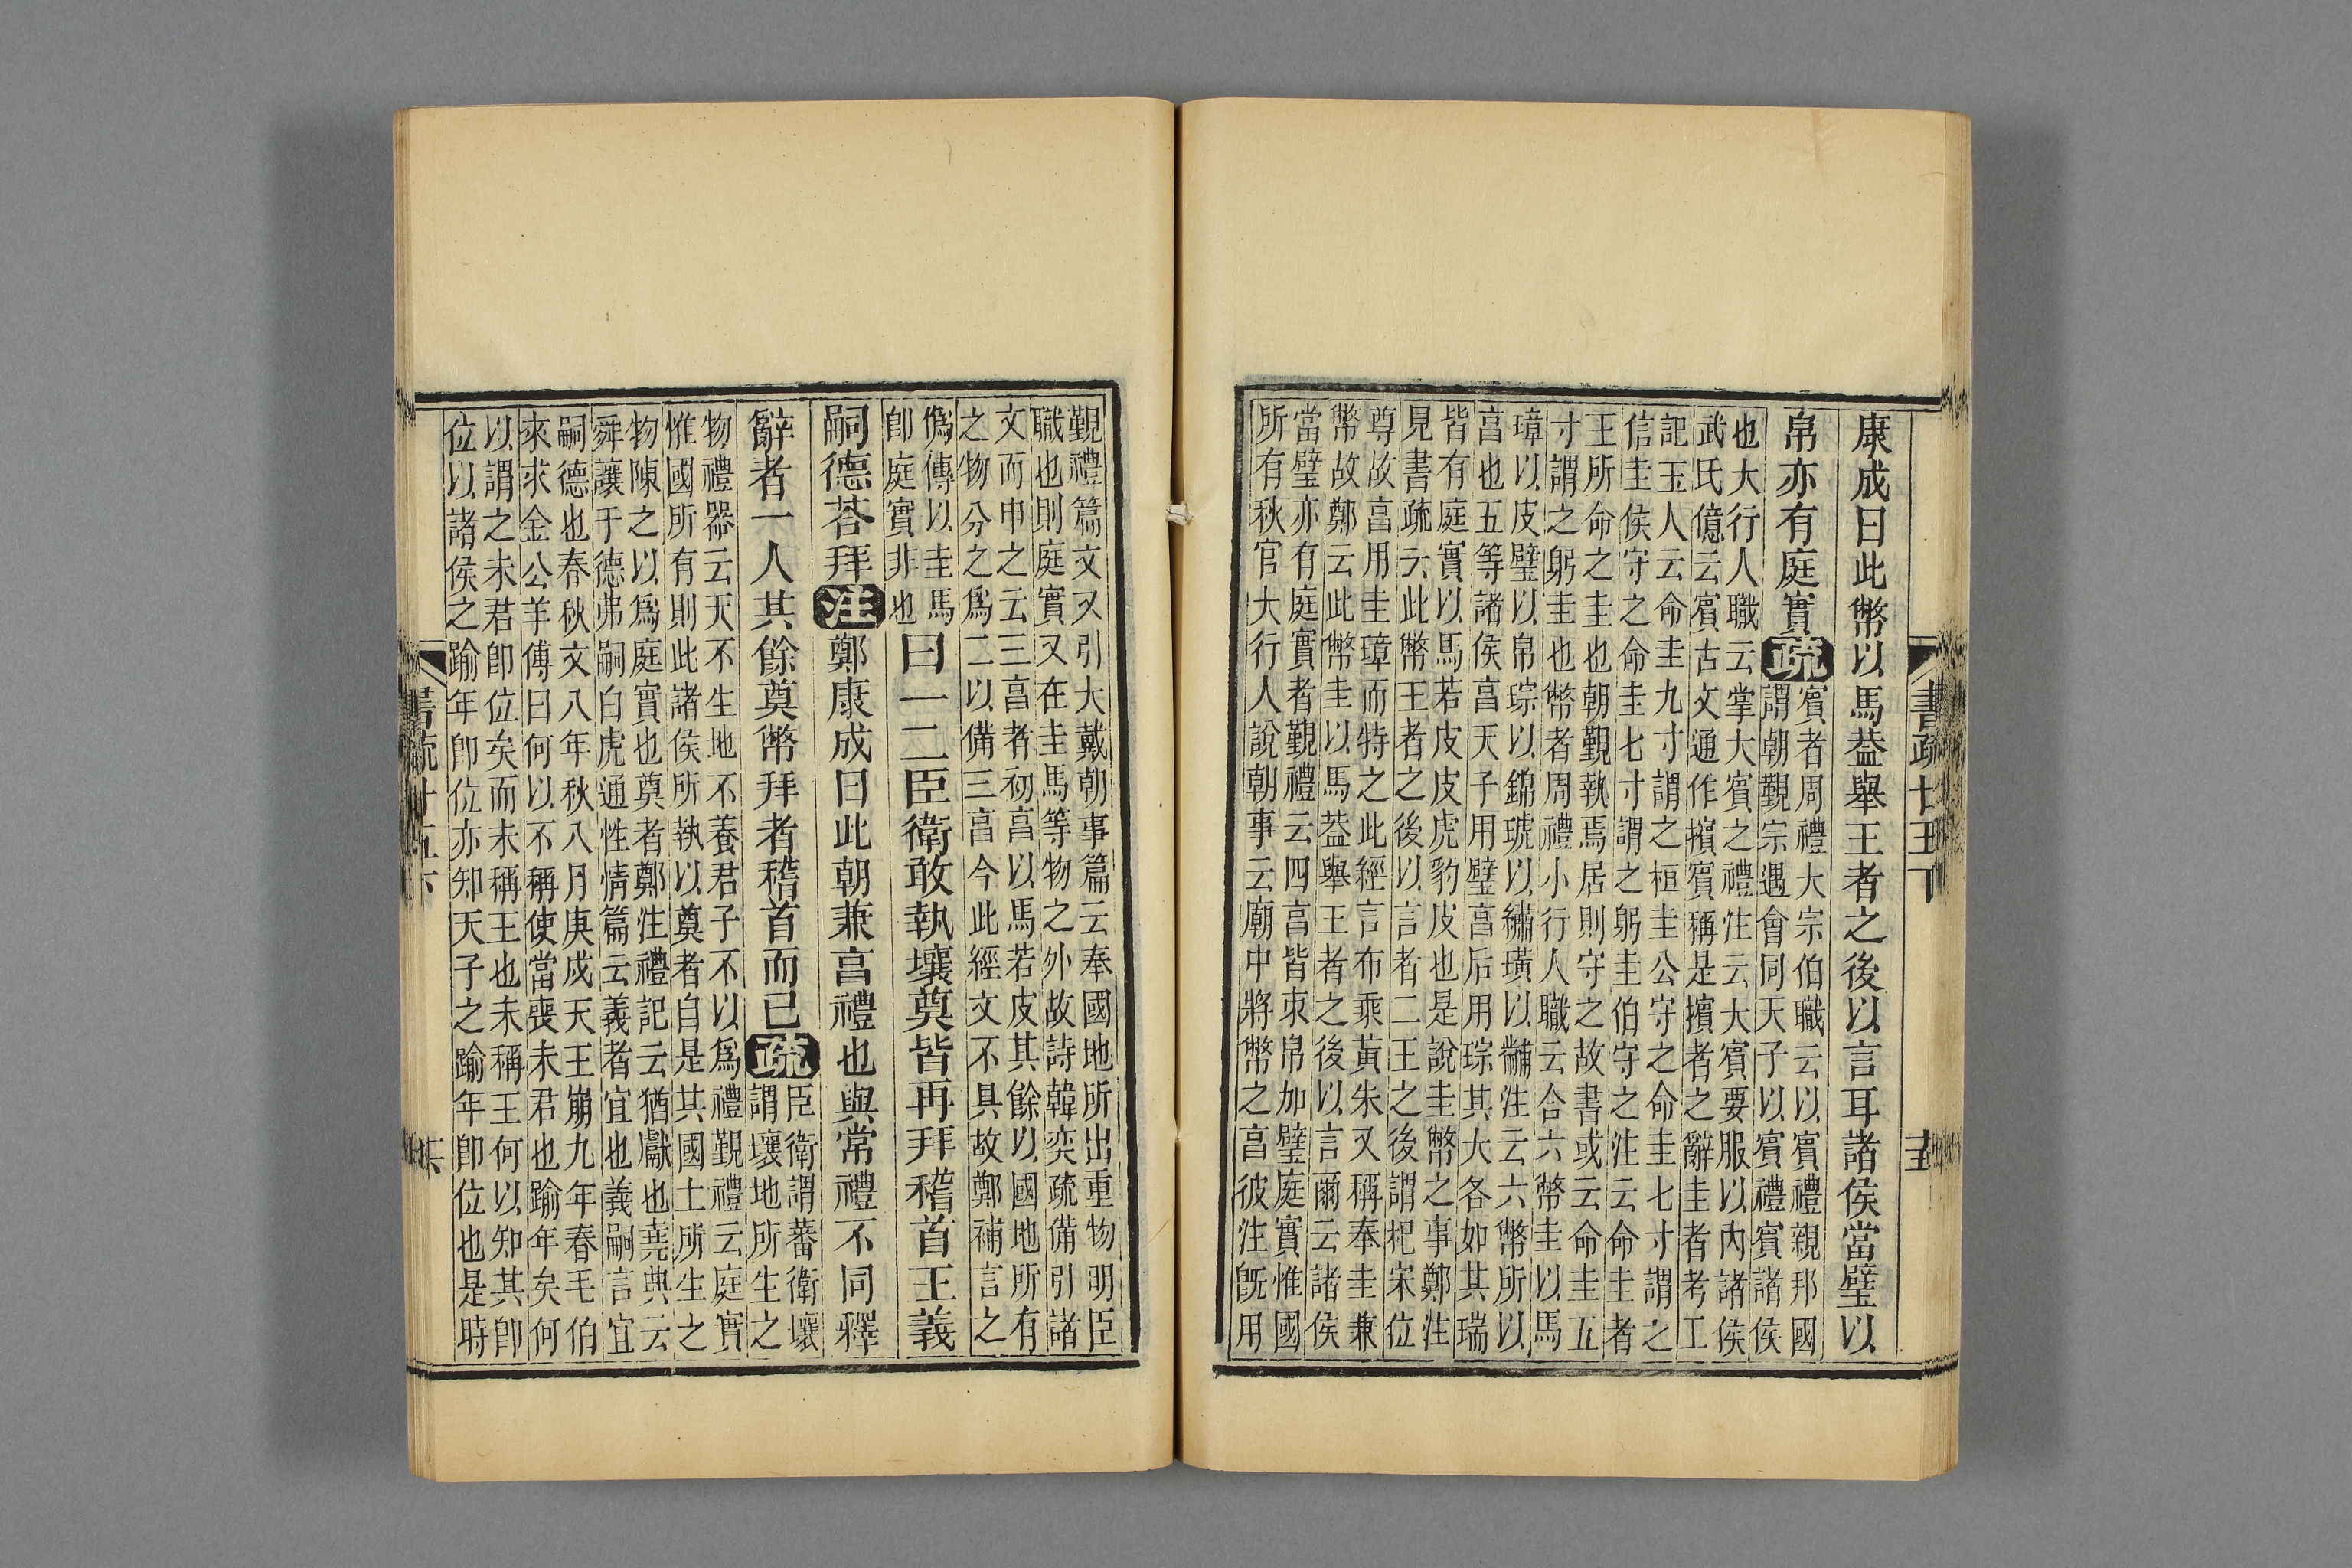 康成曰此幣以馬葢舉王者之後以言耳諸侯當璧以
帛亦有庭實疏
賓者周禮大宗伯職云以賓禮親邦國
謂朝覲宗遇會同天子以賓禮賓諸侯
也大行人職云掌大賓之禮注云大賓要服以內諸侯
武氏億云賓古文通作擯賓稱是擯者之辭圭者考工
記玉人云命圭九寸謂之桓圭公守之命圭七寸謂之
信圭侯守之命圭七寸謂之躬圭伯守之注云命圭者
王所命之圭也朝覲執焉居則守之故書或云命圭五
寸謂之躬圭也幣者周禮小行人職云合六幣圭以馬
璋以皮璧以帛琮以錦琥以繡璜以黼注云六幣所以
亯也五等諸侯亯天子用璧亯后用琮其大各如其瑞
皆有庭實以馬若皮皮虎豹皮也是說圭幣之事鄭注
見書疏云此幣王者之後以言者二王之後謂杞宋位
尊故亯用圭璋而特之此經言布乘黃朱又稱奉圭兼
幣故鄭云此幣圭以馬葢舉王者之後以言爾云諸侯
當璧亦有庭實者覲禮云四亯皆束帛加璧庭實惟國
所有秋官大行人說朝事云廟中將幣之亯彼注旣用
覲禮篇文又引大戴朝事篇云奉國地所出重物明臣
職也則庭實又在圭馬等物之外故詩韓奕疏備引諸
文而申之云三亯者初亯以馬若皮其餘以國地所有
之物分之爲二以備三亯今此經文不具故鄭補言之
僞傳以圭馬
卽庭實非也
曰一二臣衛敢執壤奠皆再拜稽首王義
嗣德荅拜注鄭康成曰此朝兼亯禮也與常禮不同釋
辭者一人其餘奠幣拜者稽首而已疏
臣衛謂蕃衛壤
謂壤地所生之
物禮器云天不生地不養君子不以爲禮覲禮云庭實
惟國所有則此諸侯所執以奠者自是其國土所生之
物陳之以爲庭實也奠者鄭注禮記云猶獻也堯典云
舜讓于德弗嗣白虎通性情篇云義者宜也義嗣言宜
嗣德也春秋文八年秋八月庚戌天王崩九年春毛伯
來求金公羊傳曰何以不稱使當喪未君也踰年矣何
以謂之未君卽位矣而未稱王也未稱王何以知其卽
位以諸侯之踰年卽位亦知天子之踰年卽位也是時